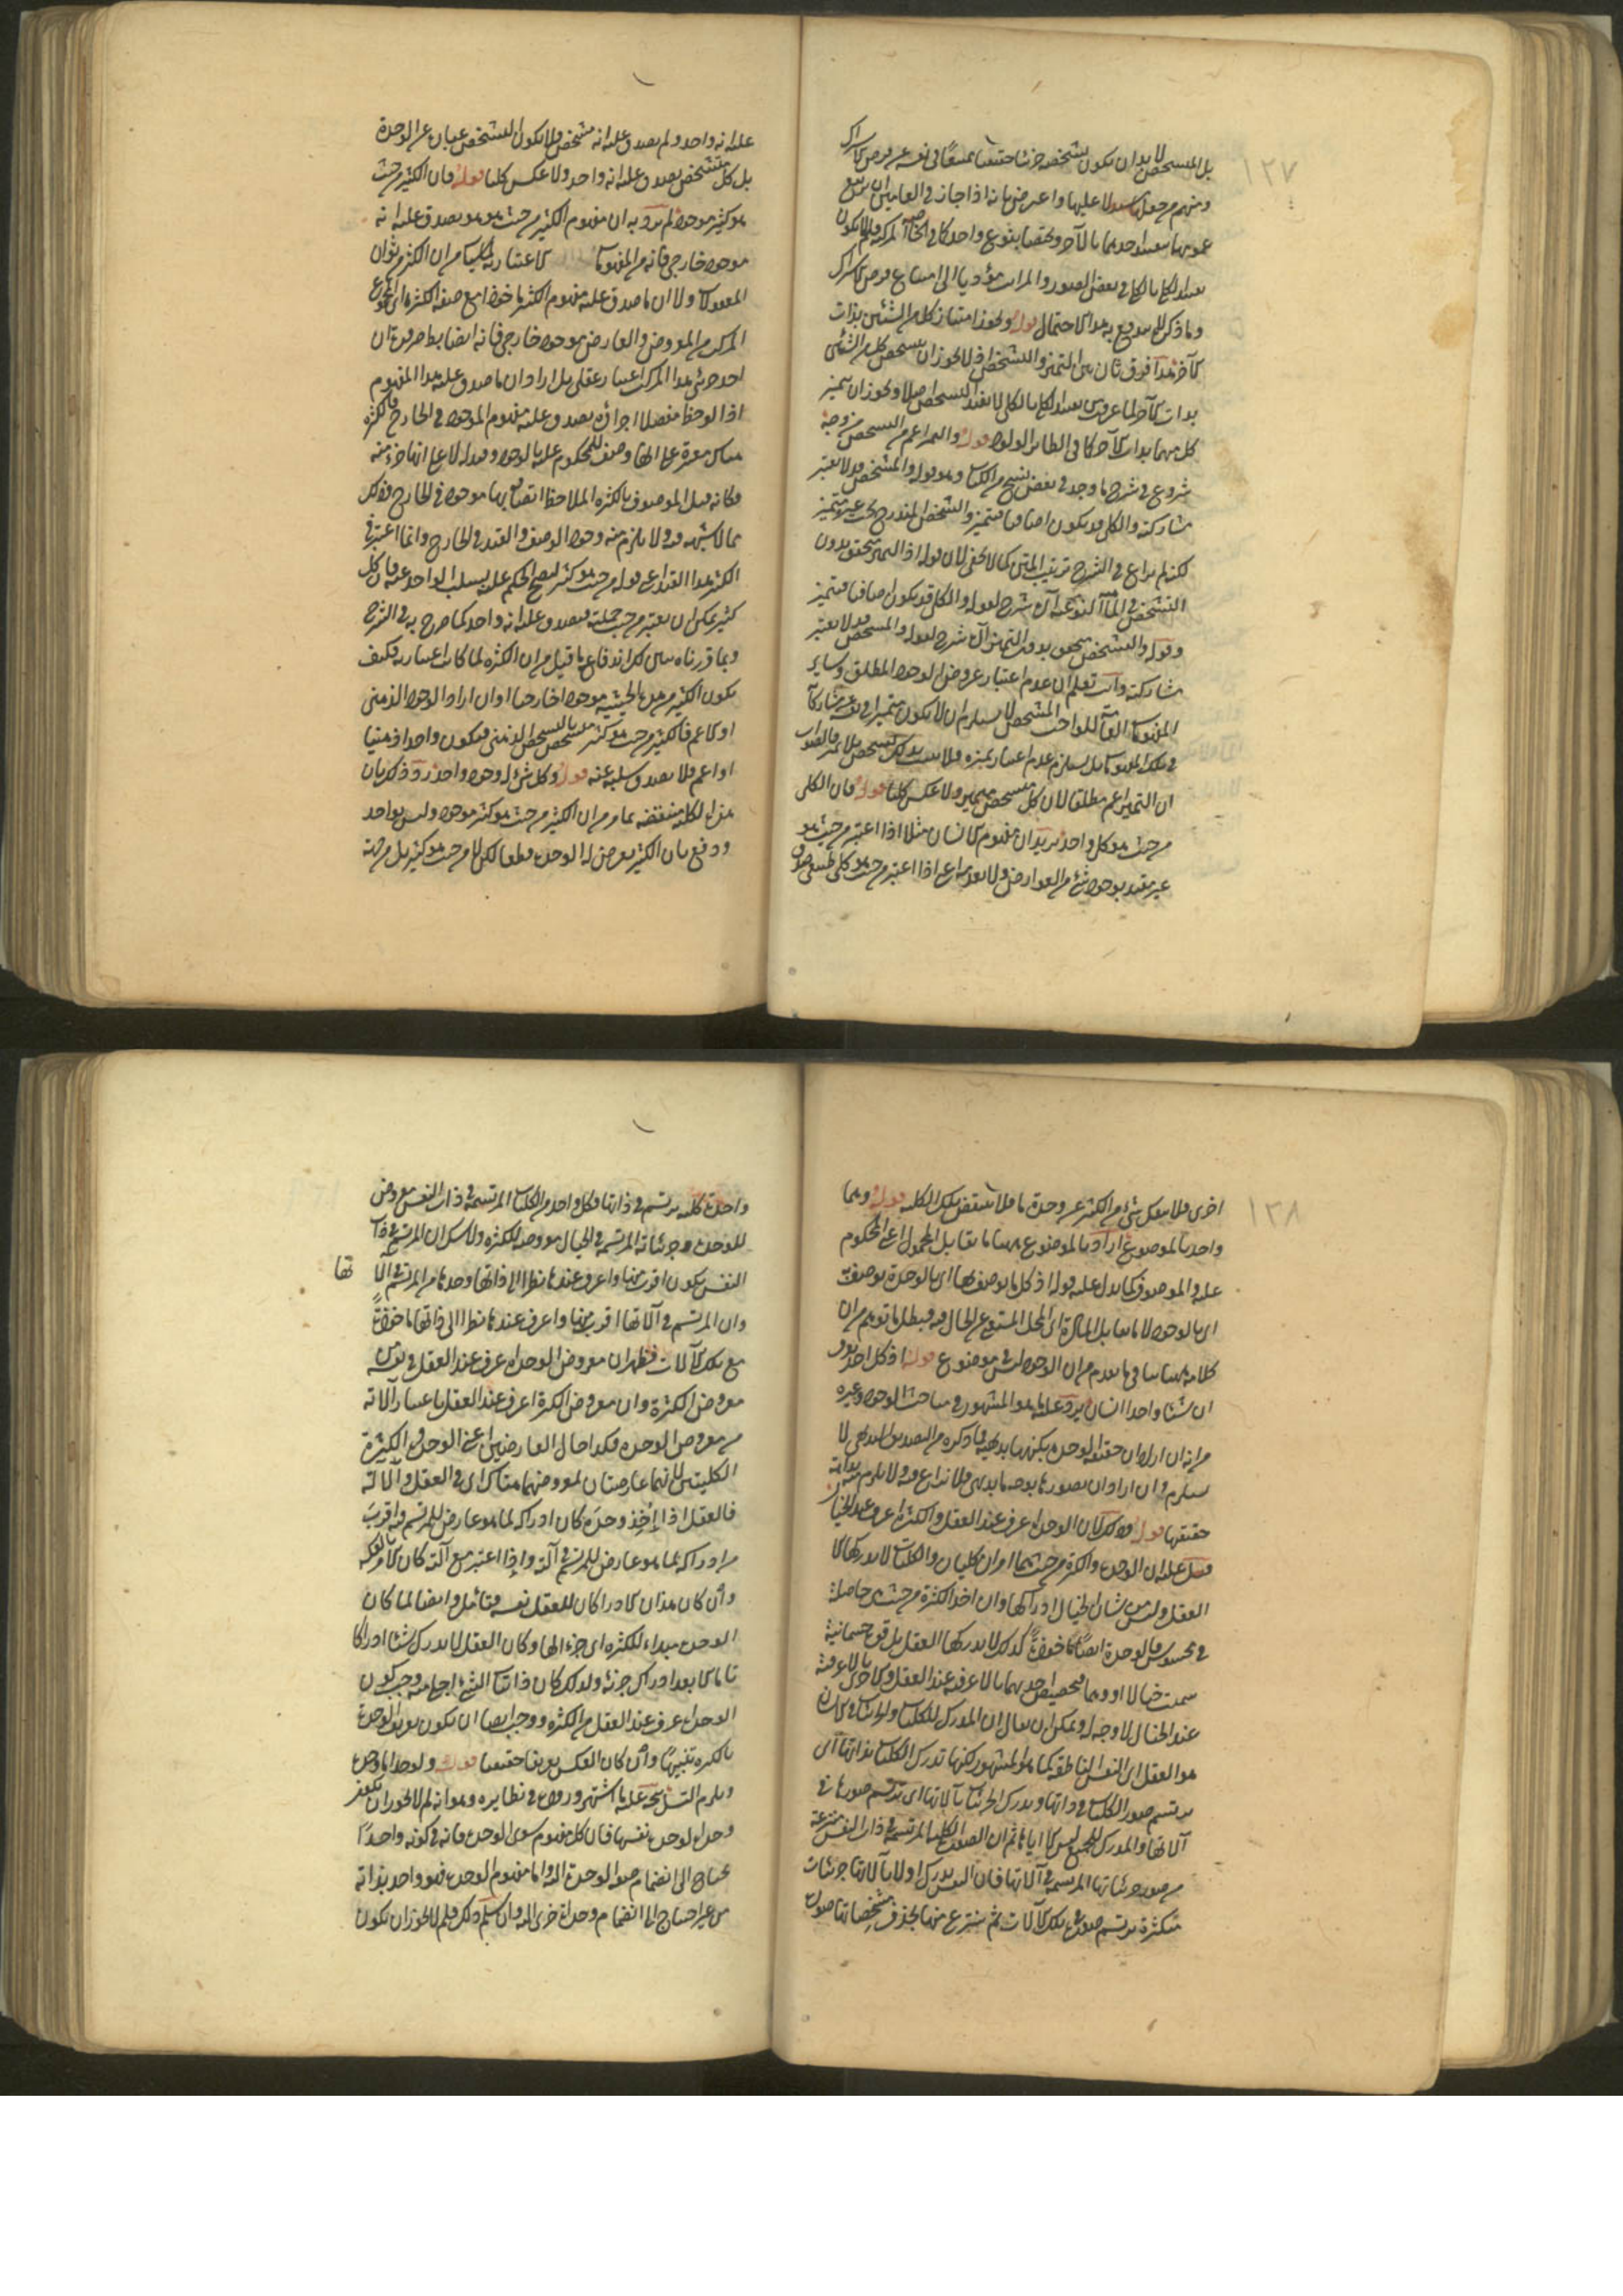 ١٢٧
بل المتشخص لا بد ان يكون تشخصه جزئيا حقيقيا ممتنعا في نفسه عن فرض الاشتراك
ومنهم من جعل سؤالا عليها واعترض بانه اذا جاز في العامين ان يرتفع
عمومهما بتقييد احدهما بالآخر ويختصا بنوع واحد كما في الخاصة المركبة فلم لا يكون
تقييد الكلي بالكلي في بعض الصور والمراتب مؤديا الى امتناع فرض الاشتراك
وما ذكر لا يندفع به هذا الاحتمال قوله ويجوز امتياز كل من الشيئين بذات
الآخر هذا فرق ثان بين التميز والتشخص اذ لا يجوز ان يتشخص كل من الشيئين
بذات الآخر لما عرفت من ان تقييد الكلي بالكلي لا يفيد التشخص اصلا ويجوز ان يتميز
كل منهما بذات الآخر كما في الطائر الولود قوله والتميز اعم من التشخص من وجه
شروع في شرح ما وجد في بعض نسخ الكتاب وهو قوله والمتشخص قد لا يعتبر
مشاركته والكلي قد يكون اضافيا فيتميز والشخص المندرج تحت غيره متميز
لكنه لم يراع في الشرح ترتيب المتن كما لا يخفى لان قوله اذ التميز يتحقق بدون
التشخص في الماهية النوعية الخ شرح لقوله والكلي قد يكون اضافيا فيتميز
وقوله والتشخص يتحقق بدون التميز الخ شرح لقوله والمتشخص قد لا يعتبر
مشاركته وانت تعلم ان عدم اعتبار عروض الوجود المطلق وسائر
المفهومات العامة للواحد المتشخص لا يستلزم ان لا يكون متميزا في نفسه عن مشاركاته
في تلك المفهومات بل يستلزم عدم اعتبار تميزه فلا يثبت بذلك تشخص بلا تميز فالصواب
ان التميز اعم مطلقا لان كل متشخص متميز ولا عكس كليا قوله فان الكلي
من حيث هو كلي واحد يريد ان مفهوم الانسان مثلا اذا اعتبر من حيث هو
غير مقيد بوجود شيء من العوارض ولا بعدمه اعني اذا اعتبر من حيث هو كلي طبيعي صدق
عليه انه واحد ولم يصدق عليه انه متشخص فلا يكون التشخص عبارة عن الوحدة
بل كل متشخص يصدق عليه انه واحد ولا عكس كليا قوله فان الكثير من حيث
هو كثير موجود لم يرد به ان مفهوم الكثير من حيث هو هو يصدق عليه انه
موجود خارجي فانه من المفهومات الاعتبارية لما سيأتي من ان الكثرة من ثواني
المعقولات ولا ان ما صدق عليه مفهوم الكثير مأخوذا مع صفة الكثرة اي المجموع
المركب من المعروض والعارض موجود خارجي فانه ايضا بط ضرورة ان
احد جزئي هذا المركب اعتبار عقلي بل اراد ان ما صدق عليه هذا المفهوم
اذا لوحظ مفصلا اجزاؤه يصدق عليه مفهوم الموجود في الخارج فالكثرة
هناك معتبرة على انها وصف للمحكوم عليه بالوجود وقيد له لا على انها جزء منه
فكانه قيل الموصوف بالكثرة الملاحظ اتصافه بها موجود في الخارج وذلك
مما لا شبهة فيه ولا يلزم منه وجود الوصف والقيد في الخارج وانما اعتبر في
الكثير هذا القيد اعني قوله من حيث هو كثير ليصح الحكم عليه بسلب الواحد عنه فان كل
كثير يمكن ان يعتبر من حيث جملته فيصدق عليه انه واحد كما صرح به في الشرح
وبما قررناه تبين لك اندفاع ما قيل من ان الكثرة لما كانت اعتبارية فكيف
يكون الكثير من هذه الحيثية موجودا خارجيا او ان اراد الوجود الذهني
او الاعم فالكثير من حيث هو كثير متشخص بالتشخص الذهني فيكون واحدا ذهنيا
او اعم فلا يصدق سلبه عنه قوله وكل شيء له وجود واحد رد ذكر بان
هذه الكلية منتقضة بما مر من ان الكثير من حيث هو كثير موجود وليس بواحد
ودفع بان الكثير يعرض له الوحدة قطعا لكن لا من حيث هو كثير بل من جهة
١٢٨
اخرى فلا ينفك شيء من الكثير عن وحدة ما فلا تنتقض تلك الكلية قوله وهما
واحد بالموضوع اراد بالموضوع ههنا ما يقابل المحمول اعني المحكوم
عليه والموصوف كما يدل عليه قوله اذ كل ما يوصف بها اي بالوحدة يوصف به
اي بالوجود لا ما يقابل المادة اي المحل المستغني عن الحال فيه فبطل ما توهم من ان
كلامه ههنا ينافي ما تقدم من ان الوجود ليس في موضوع قوله اذ كل احد يعرف
ان شيئا واحدا انسان يرد عليه ما هو المشهور في مباحث الوجود وغيره
من انه ان اراد ان حقيقة الوحدة بكنهها بديهية فما ذكره من التصديق البديهي لا
يستلزمه وان اراد ان تصورها بوجه ما بديهي فلا نزاع فيه ولا يلزم منه بداهة
حقيقتها قوله وذلك لان الوحدة اعرف عند العقل والكثرة اعرف عند الخيال
قيل عليه ان الوحدة والكثرة من حيث هما امران كليان والكليات لا يدركها الا
العقل وليس من شأن الخيال ادراكها وان اخذ الكثرة من حيث هي حاصلة
في محسوس فالوحدة ايضا مأخوذة كذلك لا يدركها العقل بل قوة جسمانية
سميت خيالا او وهما فتخصيص احدهما بالاعرفية عند العقل والاخرى بالاعرفية
عند الخيال لا وجه له ويمكن ان يقال ان المدرك للكليات والجزئيات في الانسان
هو العقل اي النفس الناطقة كما هو المشهور لكنها تدرك الكليات بذاتها اي
يرتسم صور الكليات في ذاتها ويدرك الجزئيات بآلاتها اي يرتسم صورها في
آلاتها والمدرك للجميع ليس الا اياها ثم ان الصور الكلية المرتسمة في ذات النفس منتزعة
من صور جزئياتها المرتسمة في آلاتها فان النفس يدرك اولا بآلاتها جزئيات
متكثرة يرتسم صورها في تلك الآلات ثم ينتزع منها بحذف مشخصاتها صورة
واحدة كلية يرتسم في ذاتها فكل واحد من الكليات المرتسمة في ذات النفس معروض
للوحدة وجزئياته المرتسمة في الخيال معروضة للكثرة ولا شك ان المرتسم في ذات
النفس يكون اقرب منها واعرف عندها نظرا الى ذاتها وحدها من المرتسم في آلا تها
وان المرتسم في آلاتها اقرب منها واعرف عندها نظرا الى ذاتها مأخوذة
مع تلك الآلات فظهر ان معروض الوحدة اعرف عند العقل في نفسه من
معروض الكثرة وان معروض الكثرة اعرف عند العقل باعتبار آلاته
من معروض الوحدة فكذا حال العارضين اعني الوحدة والكثرة
الكليتين لانهما عارضتان لمعروضهما هناك اي في العقل وآلاته
فالعقل اذا أُخِذ وحدَه كان ادراكه لما هو عارض للمرتسم فيه اقرب
من ادراكه لما هو عارض للمرتسم في آلته وإذا اعتبر مع آلته كان الامر بالعكس
وان كان هذان الادراكان للعقل نفسه فتأمل وايضا لما كان
الوحدة مبداء للكثرة اي جزءا لها وكان العقل لا يدرك شيئا ادراكا
تاما الا بعد ادراك جزئه ولذلك كان ذاتيات الشيء اجلى منه وجب كون
الوحدة اعرف عند العقل من الكثرة ووجب ايضا ان يكون تعريف الوحدة
بالكثرة تنبيها وان كان العكس تعريفا حقيقيا قوله ولو وجدت الوحدة
ويلزم التسلسل يتجه عليه ما اشتهر وروده في نظايره وهو انه لم لا يجوز ان يكون
وحدة الوحدة نفسها فان كل مفهوم سوى الوحدة فانه في كونه واحدا
يحتاج الى انضمام صفة الوحدة اليه واما مفهوم الوحدة فهو واحد بذاته
من غير احتياج الى انضمام وحدة اخرى اليه وان سلم ذلك فلم لا يجوز ان يكون